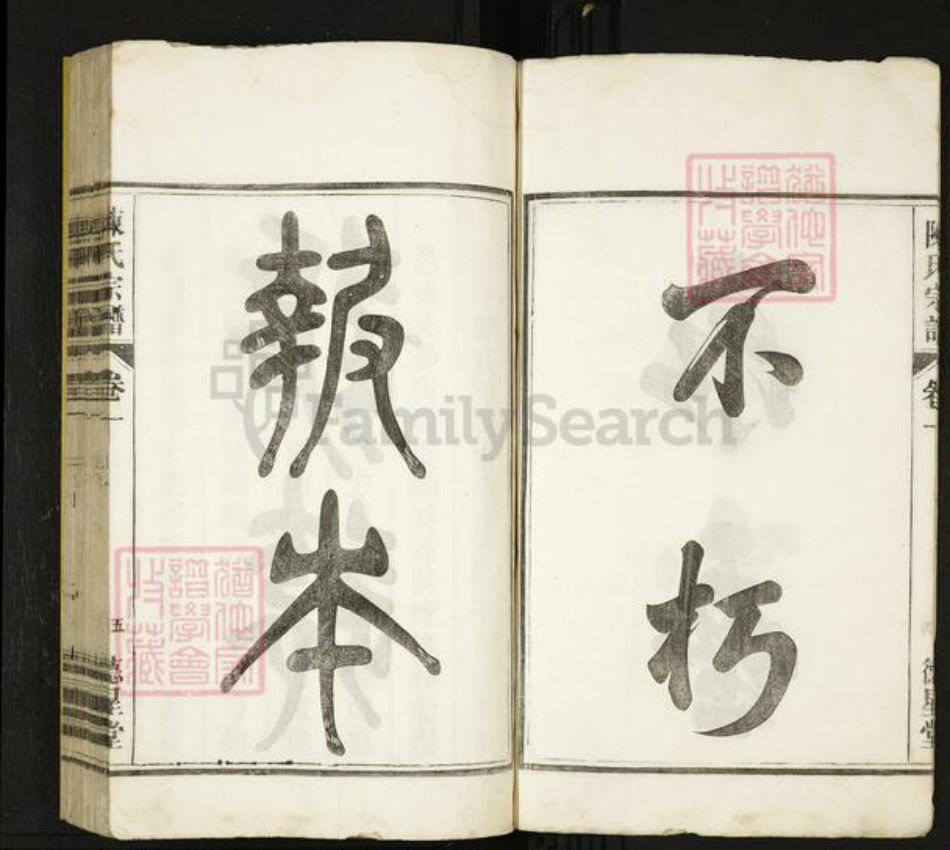 不朽
報本
陳氏宗譜
卷一
五
德星堂
陳氏宗譜
卷一
德星堂
猶他家譜學會收藏
猶他家譜學會收藏
FamilySearch